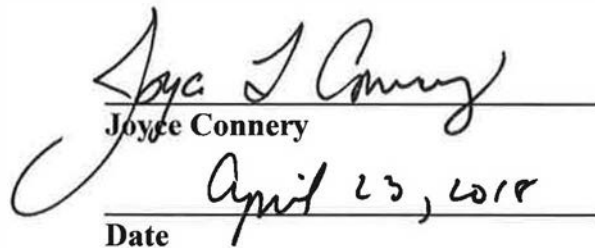 Joyce L Connery
Joyce Connery
April 23, 2018
Date